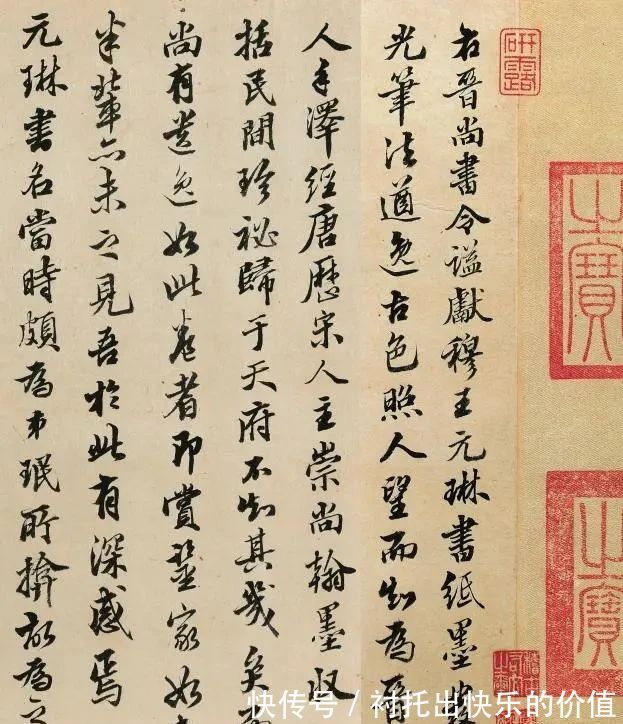 右晉尚書令謚獻穆王元琳書紙墨
光筆法遒逸古色照人望而知為晉
人手澤經唐歷宋人主崇尚翰墨收
括民間珍祕歸于天府不知其幾矣
尚有遺逸如此卷者即賞鑒家如
米輩亦未之見吾於此有深感焉
元琳書名當時頗為弟珉所揜故為之
研露
之寶
之寶
快传号 / 衬托出快乐的价值